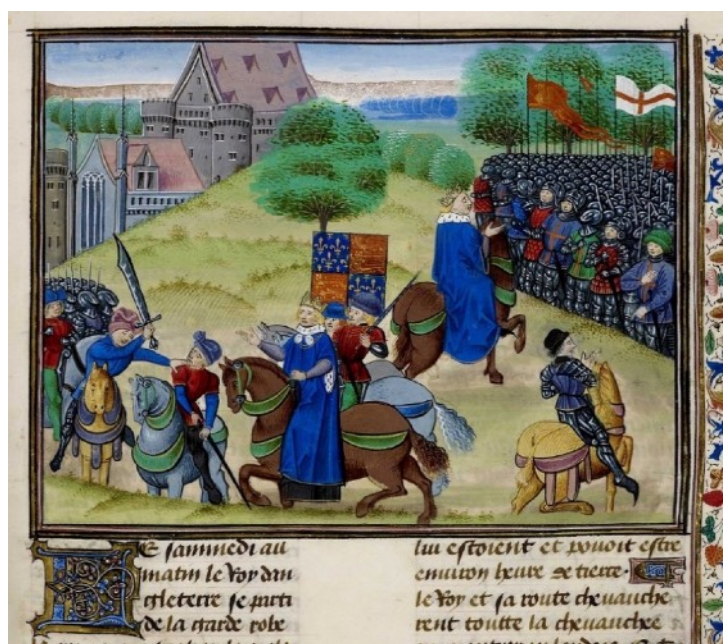 Le sammedi au
matin le Roy dan
gleterre se parti
de la garde robe
lui estoient et pouoit estre
environ heure de tierce.
le Roy et sa route chevauche
rent toutte la chevauchee